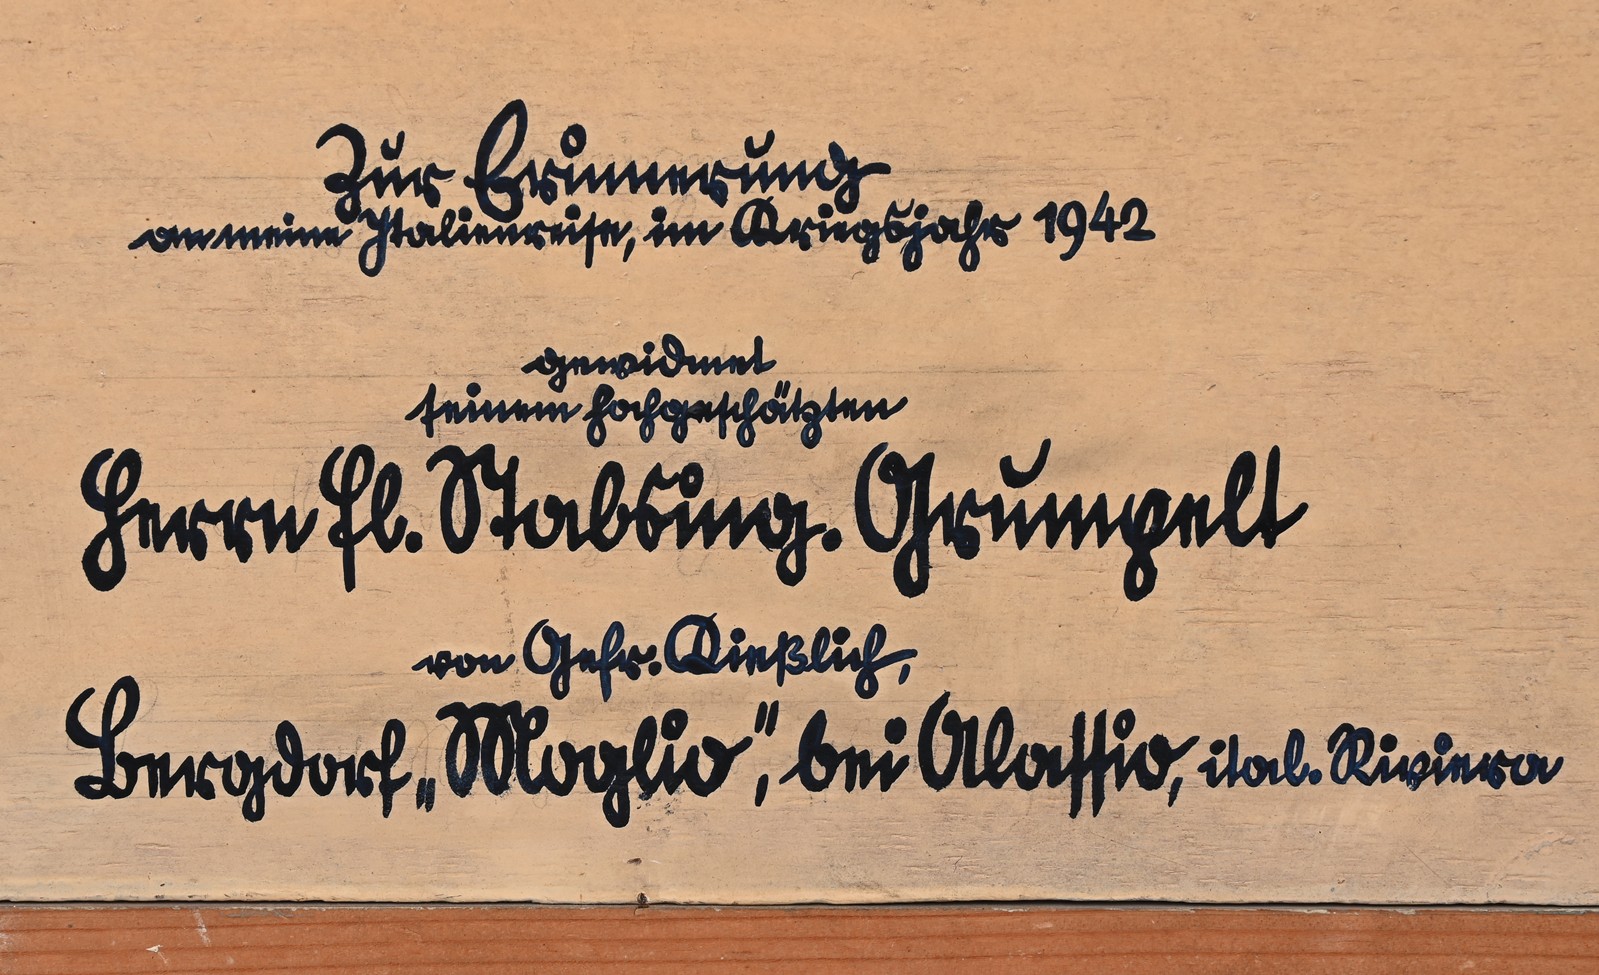 Zur Erinnerung
an meine Italienreise, im Kriegsjahr 1942
gewidmet
seinem hochgeschätzten
Herrn Fl. Stabsing. Grumpelt
von Gefr. Kießlich,
Bergdorf „Moglio“, bei Alassio, ital. Riviera